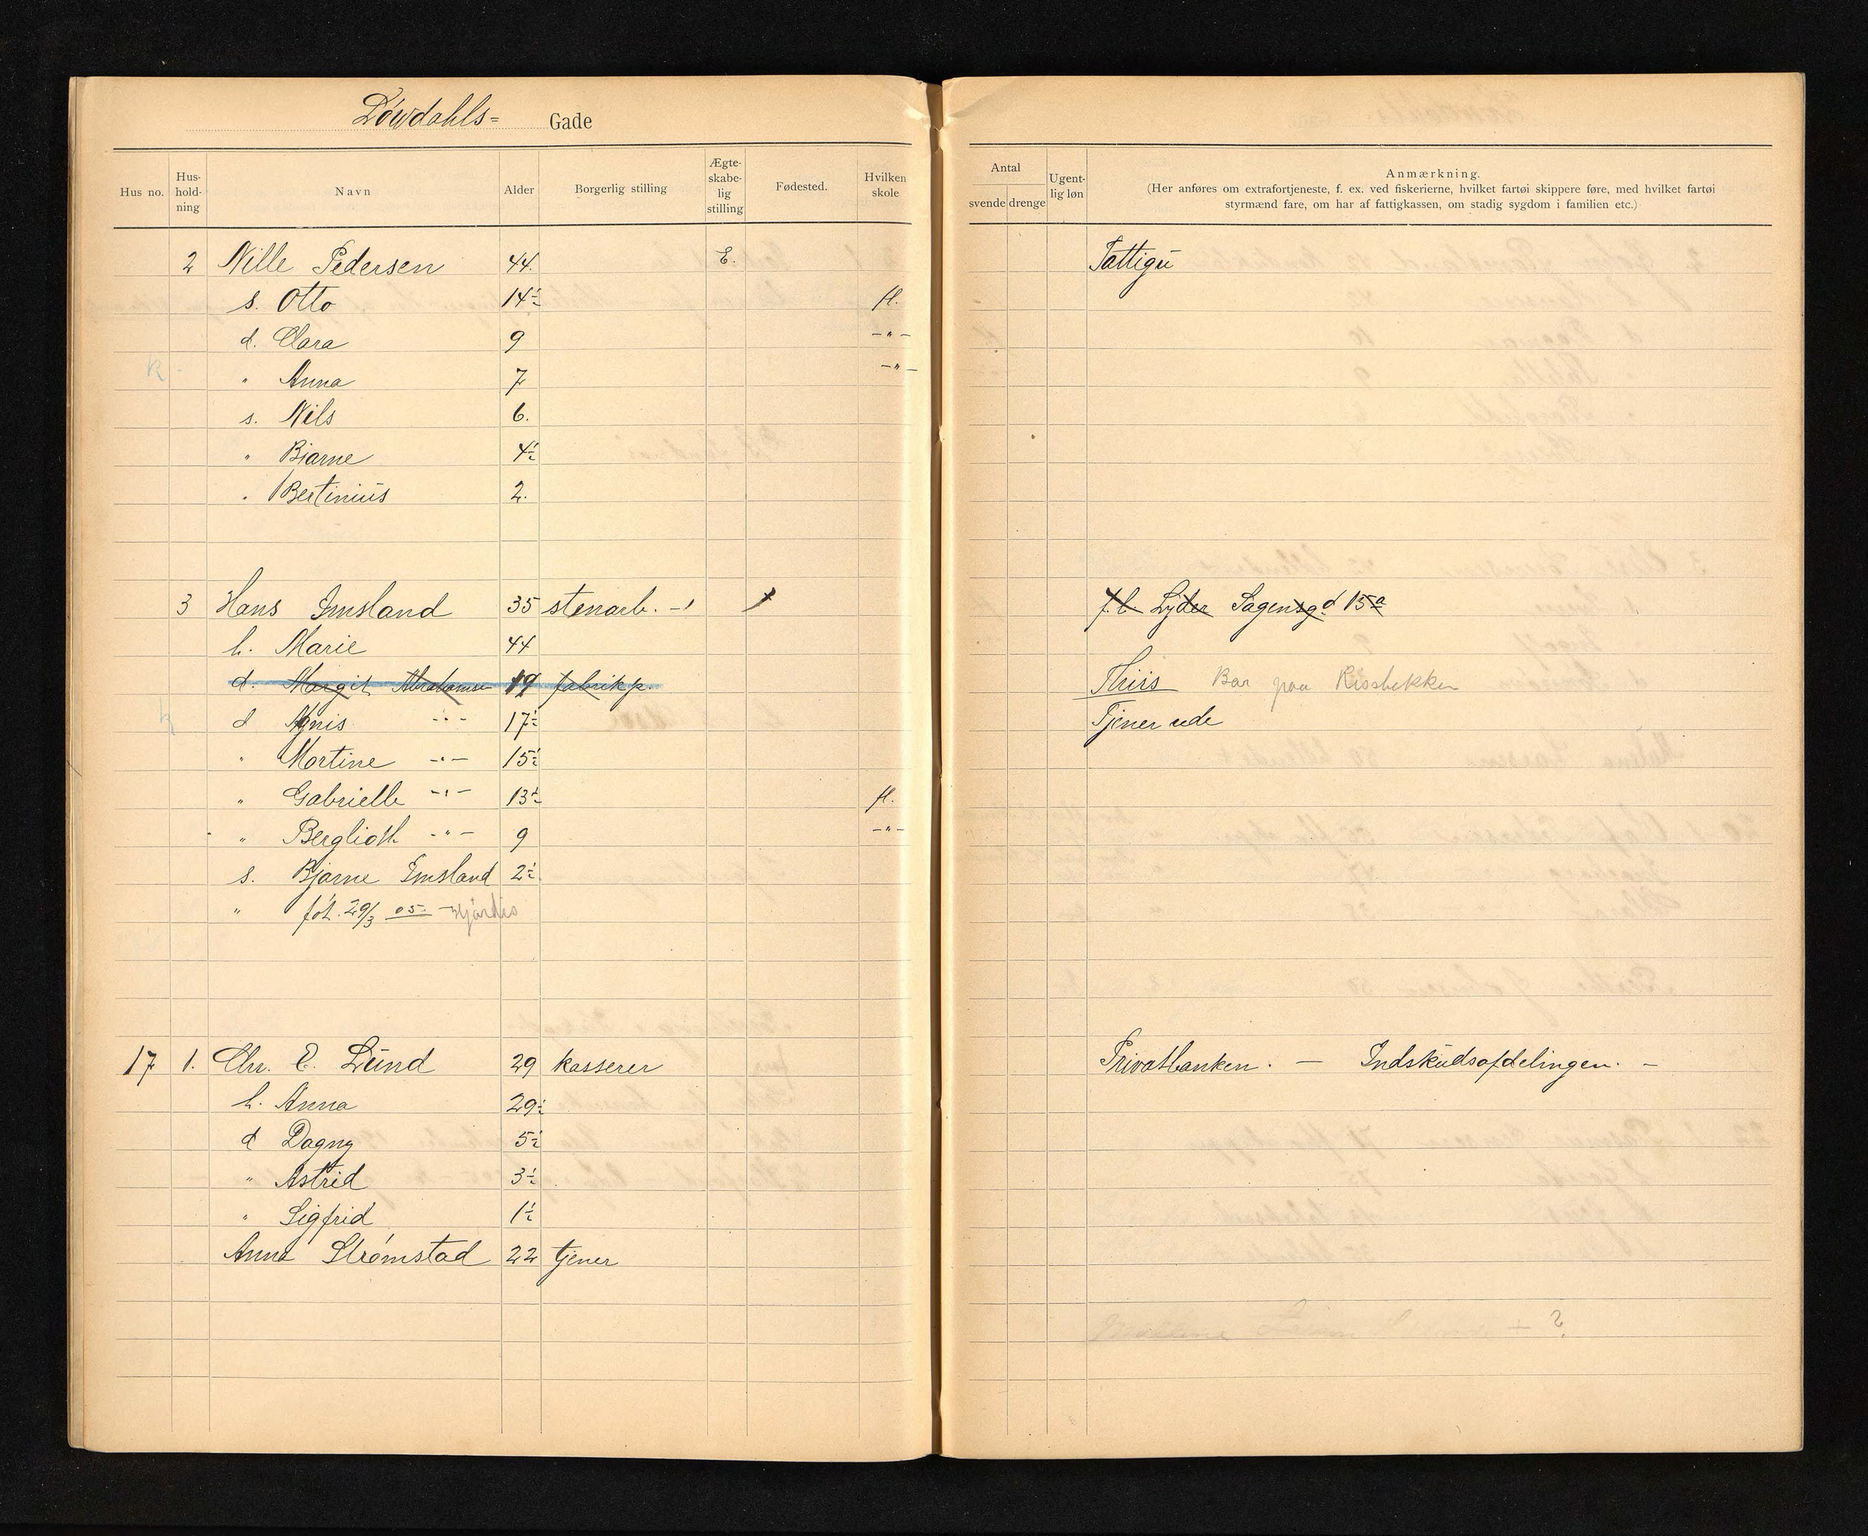 Løwdahls= Gade
Hus no. Hus-hold-ning Navn Alder Borgerlig stilling Ægte-skabe-lig stilling Fødested. Hvilken skole
Antal svende drenge Ugent-lig løn Anmærkning.
(Her anføres om extrafortjeneste, f. ex. ved fiskerierne, hvilket fartøi skippere føre, med hvilket fartøi
styrmænd fare, om har af fattigkassen, om stadig sygdom i familien etc.)
2 Nille Pedersen 44. E. Fattigu
s. Otto 14½ fl.
d. Clara 9 -"-
k. " Anna 7 -"-
s. Nils 6.
" Bjarne 4½
" Bertinius 2.
3 Hans Imsland 35 stenarb. f.b. Lyder Sagensgd 15a
h. Marie 44
d. Margit Abrahamsen 19 fabrikp. Thiis Bor paa Rissbekken
k d Agnis -"- 17½ Tjener ude
" Martine -"- 15½
" Gabrielle -"- 13½ fl.
" Berglioth -"- 9 -"-
s. Bjarne Imsland 2½
" fót. 29/3 05 Hjørdis
17 1. Chr. E. Lund 29 kasserer Privatbanken. — Indskudsafdelingen. -
h. Anna 29½
d Dagny 5½
" Astrid 3½
" Sigfrid 1½
Anna Strømstad 22 tjener
?